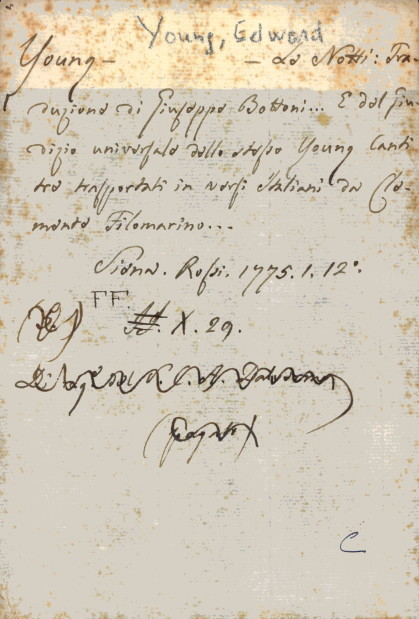 Young, Edward
Young — — Le Notti: Tra-
duzione di Giuseppe Bottoni... E del Giu-
dizio universale dello stesso Young Canti
tre trasportati in versi Italiani da Cle-
mente Filomarino...
Siena. Rossi. 1775. 1. 12°.
FF.
X. 29.
C